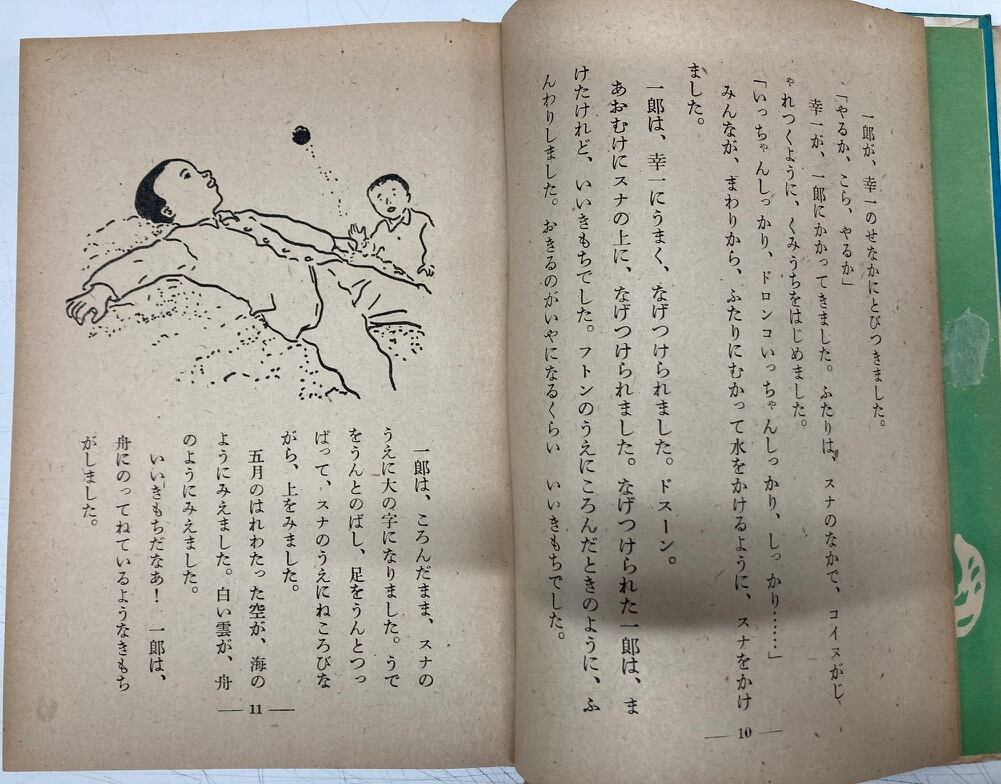 一郎が、幸一のせなかにとびつきました。
「やるか、こら、やるか」
幸一が、一郎にかかってきました。ふたりは、スナのなかで、コイヌがじ
ゃれつくように、くみうちをはじめました。
「いっちゃんしっかり、ドロンコいっちゃんしっかり、しっかり……」
みんなが、まわりから、ふたりにむかって水をかけるように、スナをかけ
ました。
一郎は、幸一にうまく、なげつけられました。ドスーン。
あおむけにスナの上に、なげつけられました。なげつけられた一郎は、ま
けたけれど、いいきもちでした。フトンのうえにころんだときのように、ふ
んわりしました。おきるのがいやになるくらい いいきもちでした。
10
一郎は、ころんだまま、スナの
うえに大の字になりました。うで
をうんとのばし、足をうんとつっ
ぱって、スナのうえにねころびな
がら、上をみました。
五月のはれわたった空が、海の
ようにみえました。白い雲が、舟
のようにみえました。
いいきもちだなあ! 一郎は、
舟にのってねているようなきもち
がしました。
11